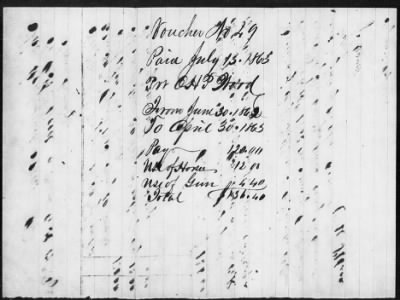 Voucher No 29
Paid July 15. 1863
For O H P Wood
From June 30. 1862
To April 30. 1863
Pay 120.00
Use of Horse 12 0
Use of Gun 4.40
Total $136.40